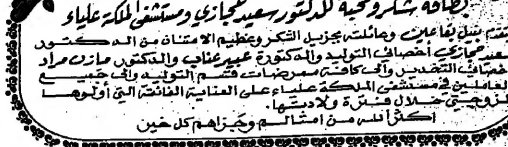 بطاقة شكر وتحية للدكتور سعيد حجازي ومستشفى الملكة علياء
يتقدم نبيل بقاعين وعائلته بجزيل الشكر وعظيم الامتنان من الدكتور
سعيد حجازي أخصائي التوليد والدكتورة عبير عناب والدكتور مازن مراد
أخصائي التخدير والى كافة ممرضات قسم التوليد والى جميع
العاملين في مستشفى الملكة علياء على العناية الفائقة التي أولوها
لزوجتي خلال فترة ولادتها.
اكثر الله من امثالهم وجزاهم كل خير